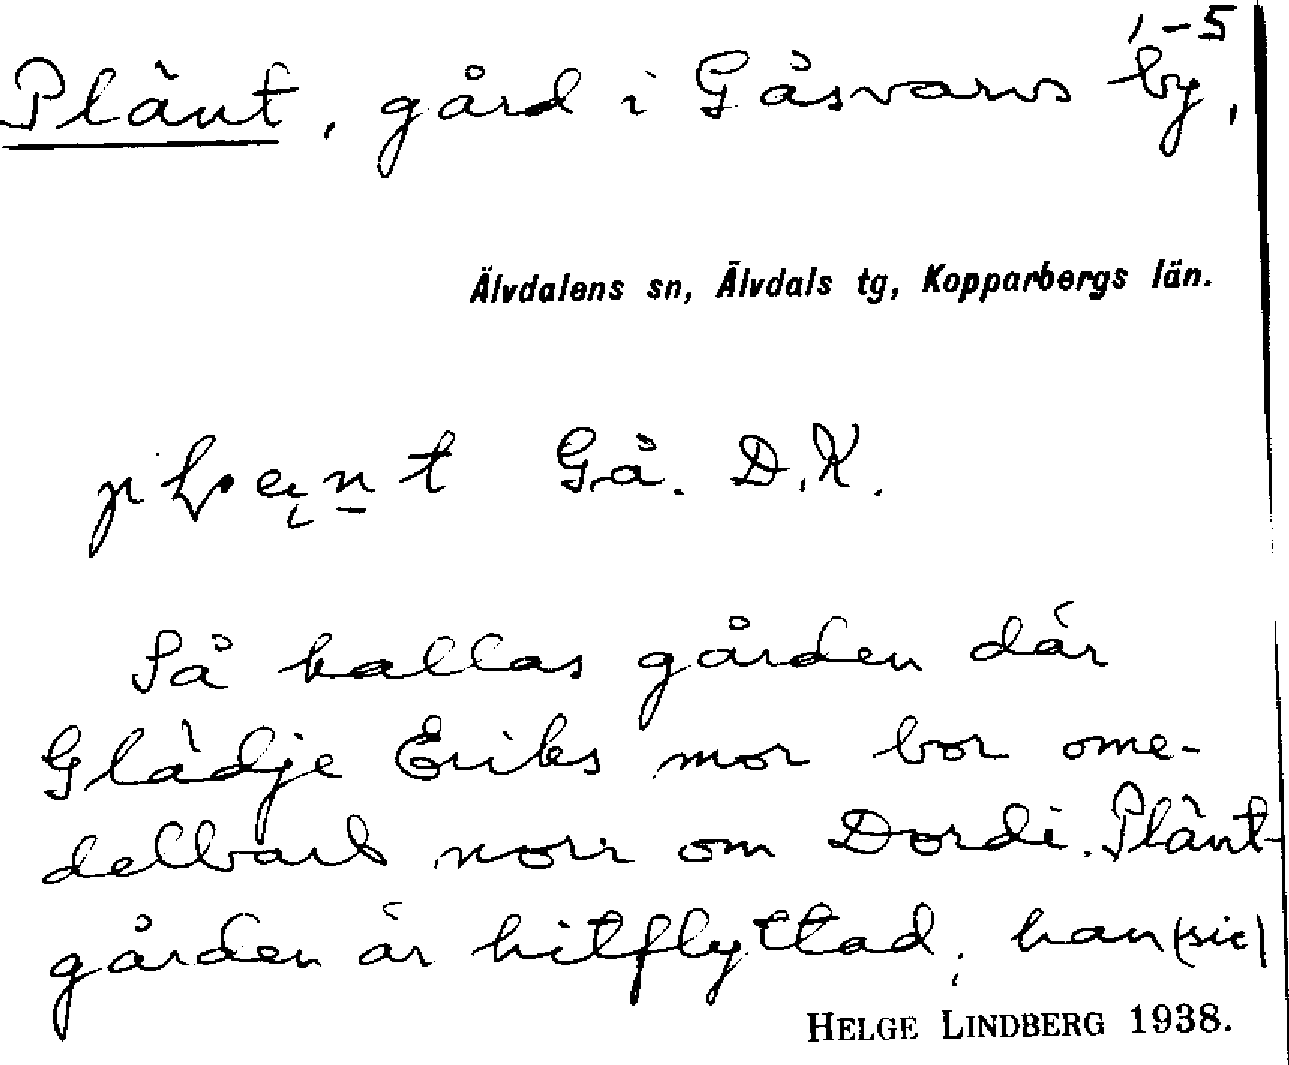 1-5
Plänt, gård i Gåsvarvs by,
Älvdalens sn, Älvdals tg, Kopparbergs län.
Gå. D.K.
Så kallas gården där
Glädje Eriks mor bor ome-
delbart norr om Dordi. Plänt-
gården är hitflyttad; han (sic)
HELGE LINDBERG 1938.